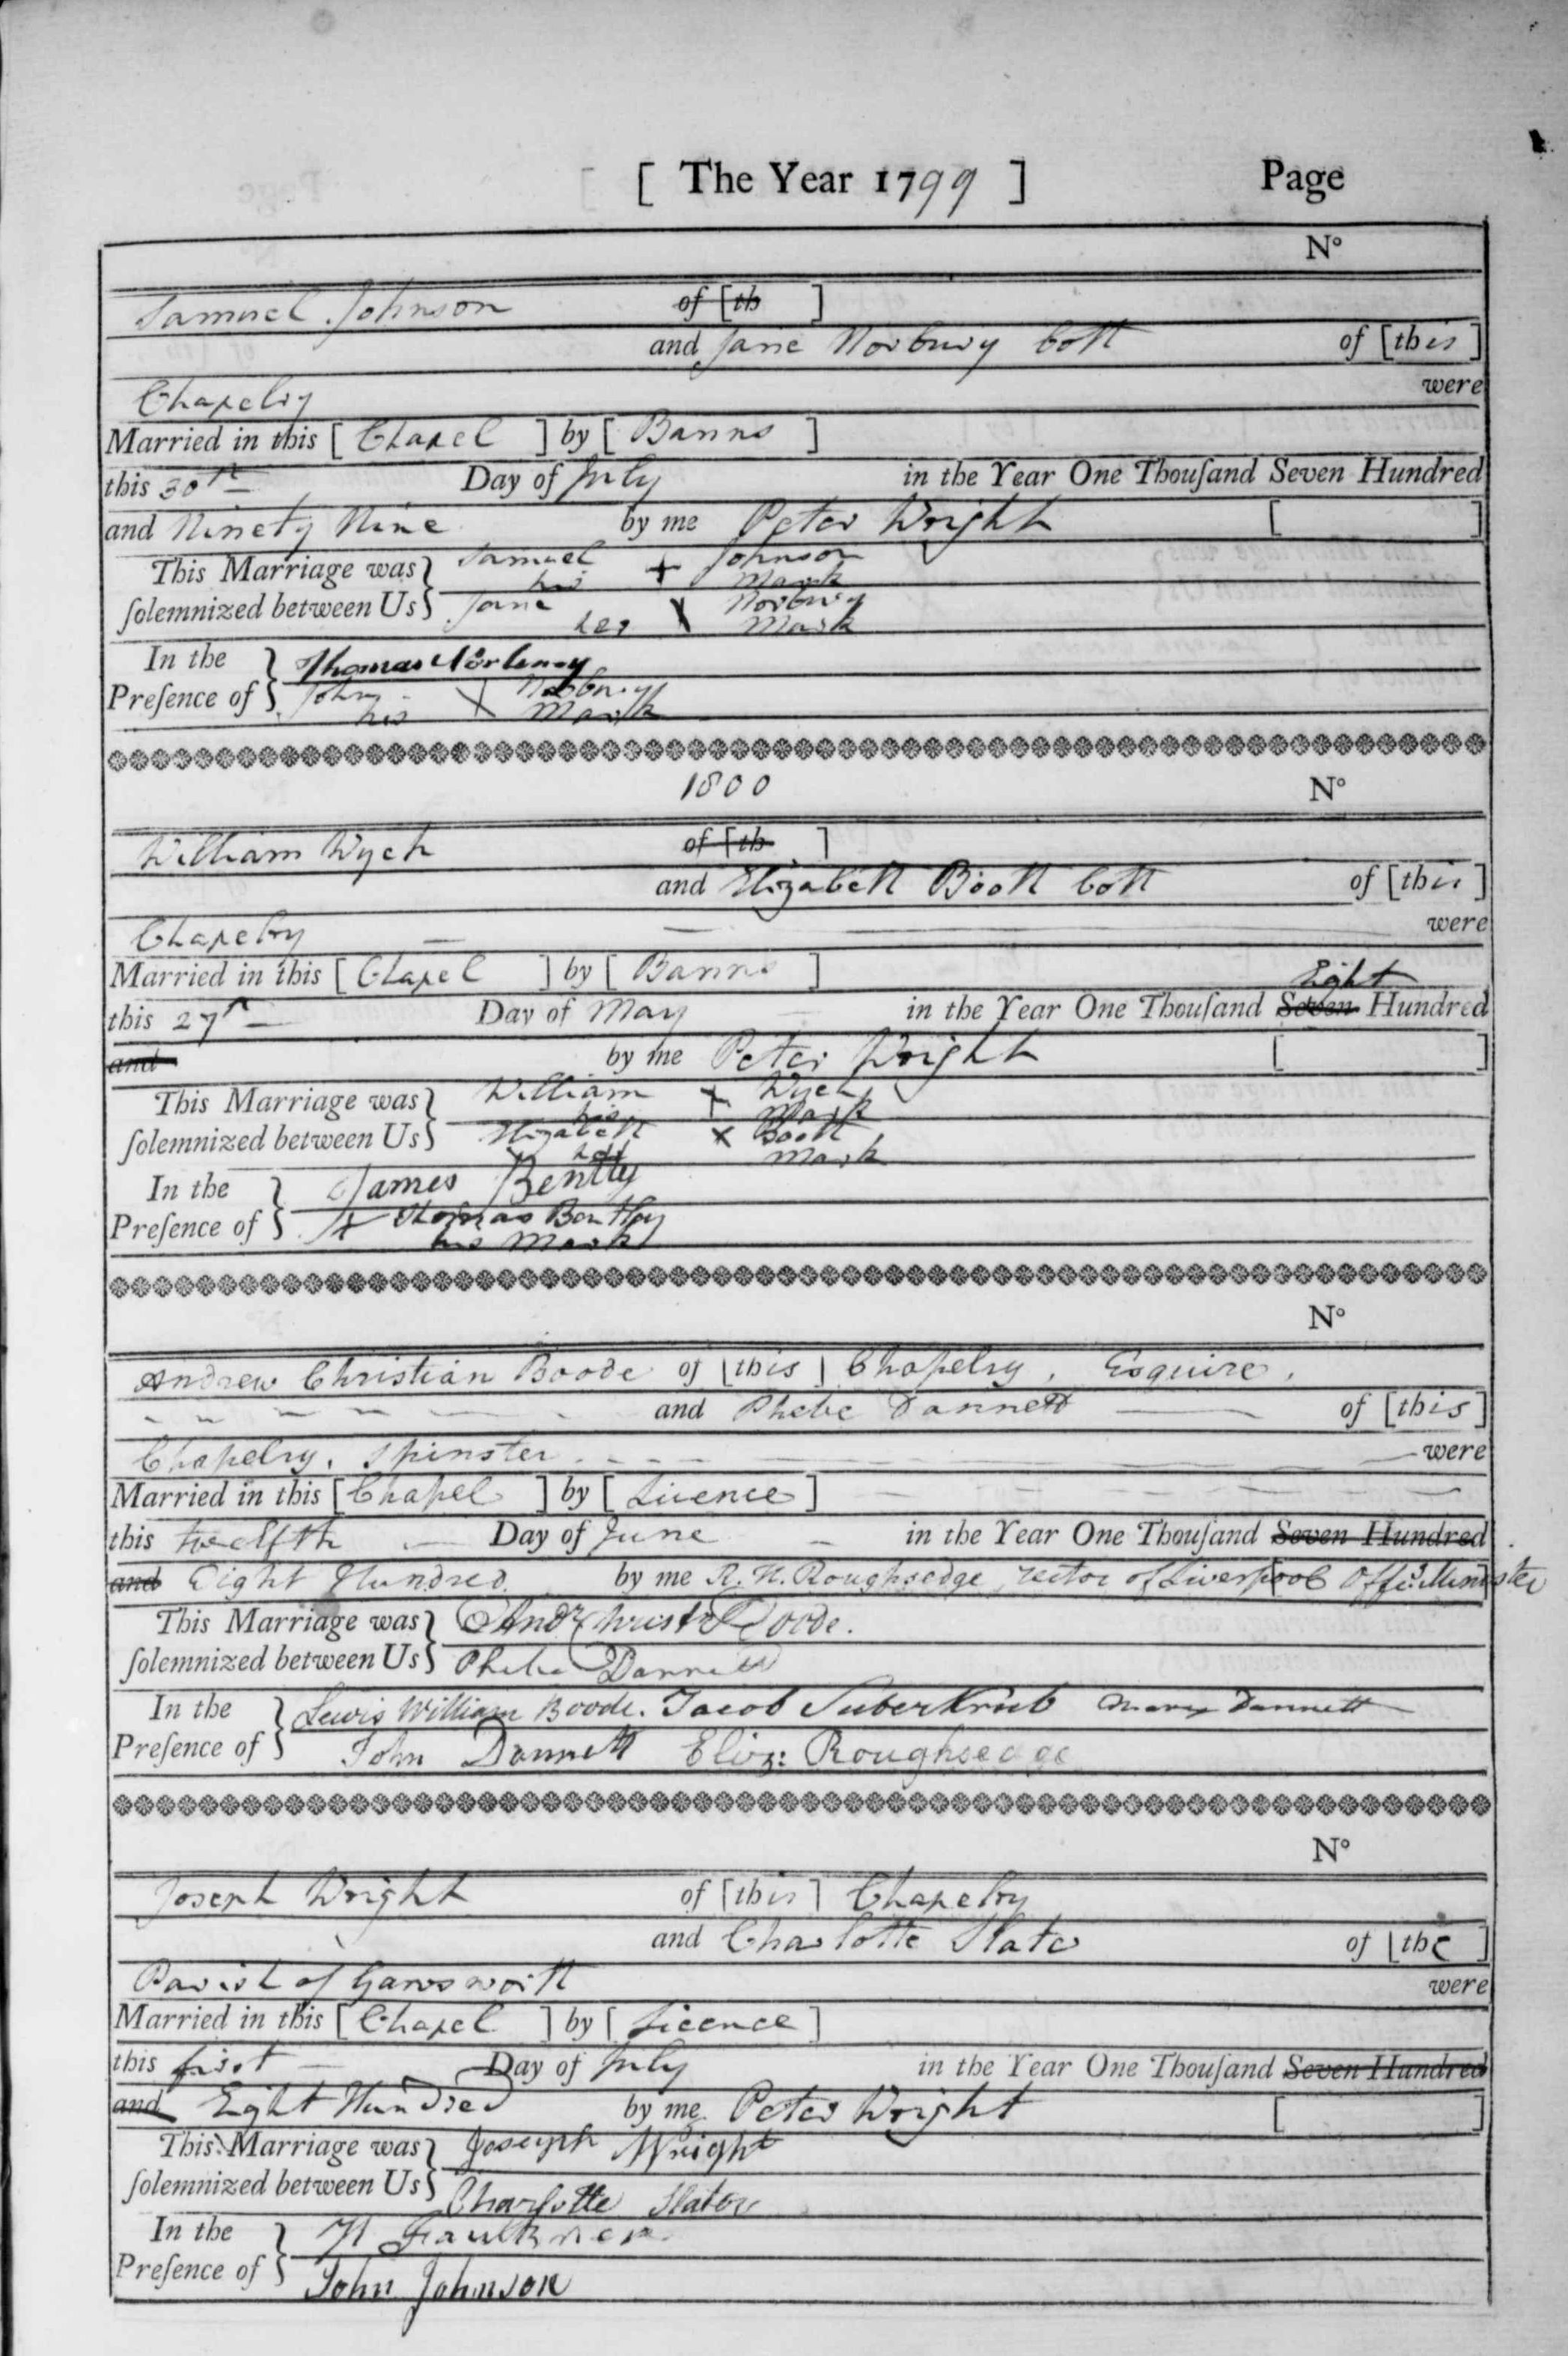 [ The Year 1799 ] Page
No
Samuel Johnson of [th ]
and Jane Norbury both of [this]
Chapelry were
Married in this [ Chapel ] by [ Banns ]
this 30th Day of July in the Year One Thouſand Seven Hundred
and Ninety Nine by me Peter Wright [ ]
This Marriage was } Samuel + Johnson
his Mark
ſolemnized between Us } Jane X Norbury
her Mark
In the } Thomas Norbury
Preſence of } John X Norbury
his Mark
1800 No
William Wych of [th ]
and Elizabeth Booth both of [this]
Chapelry were
Married in this [ Chapel ] by [ Banns ]
Eight
this 27th Day of May in the Year One Thouſand Seven Hundred
and by me Peter Wright [ ]
This Marriage was } William + Wych
his Mark
ſolemnized between Us } Elizabeth X Booth
her Mark
In the } James Bently
Preſence of } + Thomas Bentley
his Mark
No
Andrew Christian Boode of [this] Chapelry, Esquire,
and Phebe Dannett of [this]
Chapelry, Spinster were
Married in this [Chapel ] by [ Licence ]
this twelfth Day of June in the Year One Thouſand Seven Hundred
and Eight Hundred by me R. H. Roughsedge, rector of Liverpool Offi: Minister
This Marriage was } Andw Christn Boode.
ſolemnized between Us } Phebe Dannett
In the } Lewis William Boode. Jacob Suberkrub Mary Dannett
Preſence of } John Dannett Eliz: Roughsedge
No
Joseph Wright of [this] Chapelry
and Charlotte Slater of [the ]
Parish of Gawsworth were
Married in this [ Chapel ] by [ Licence ]
this first Day of July in the Year One Thouſand Seven Hundred
and Eight Hundred by me Peter Wright [ ]
This Marriage was } Joseph Wright
ſolemnized between Us } Charlotte Slater
In the } Faulkner
Preſence of } John Johnson